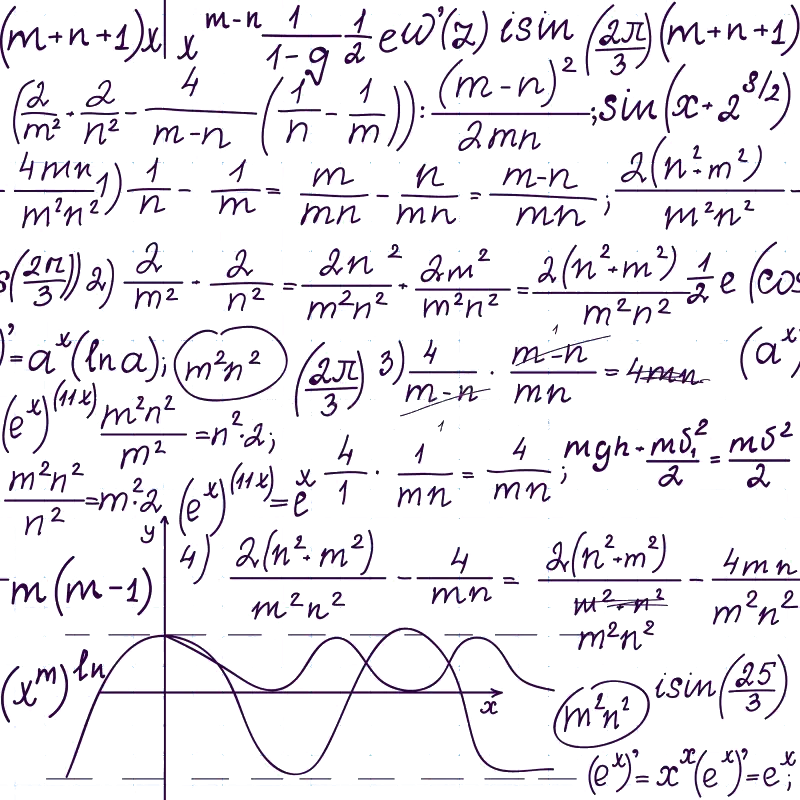 (m+n+1)x x^(m-n) 1/(1-g) 1/2 eω'(z) isin (2π/3) (m+n+1)
(2/m² + 2/n² - 4/(m-n) (1/n - 1/m)) : (m-n)²/2mn ; sin(x+2^(3/2))
- 4mn/m²n² 1) 1/n - 1/m = m/mn - n/mn = m-n/mn ; 2(n²+m²)/m²n² -
s(2π/3)) 2) 2/m² + 2/n² = 2n²/m²n² + 2m²/m²n² = 2(n²+m²)/m²n² 1/2 e (cos
)' = a^x (ln a); m²n² (2π/3) 3) 4/(m-n) · (m-n)/mn = 4mn (a^x
1 1
(e^x)^(11x) m²n²/m² = n²·2;
m²n²/n² = m²·2 (e^x)^(11x) = e^x 4/1 · 1/mn = 4/mn ; mgh + mб₁²/2 = mб²/2
y
-m(m-1) 4) 2(n²+m²)/m²n² - 4/mn = 2(n²+m²)/m²+n² m²n² - 4mn/m²n²
(x^m)^ln x m²n² isin (25/3)
(e^x)' = x^x (e^x)' = e^x;